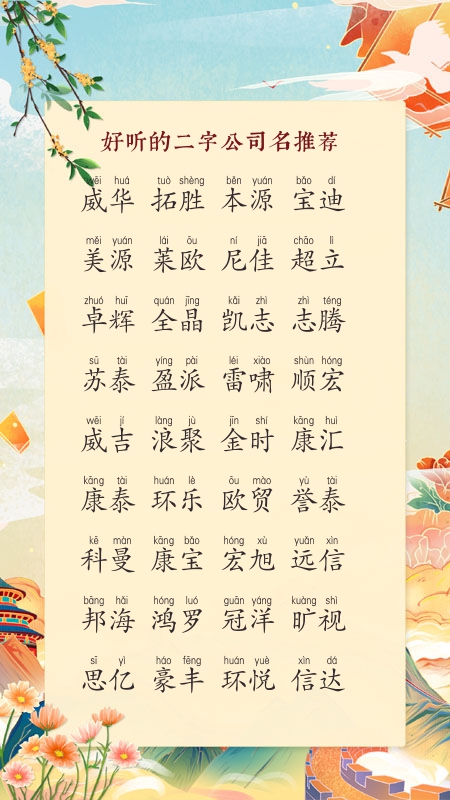 好听的二字公司名推荐
wēi huá tuò shèng běn yuán bǎo dí
威华 拓胜 本源 宝迪
měi yuán lái ōu ní jiā chāo lì
美源 莱欧 尼佳 超立
zhuó huī quán jīng kǎi zhì zhì téng
卓辉 全晶 凯志 志腾
sū tài yíng pài léi xiào shùn hóng
苏泰 盈派 雷啸 顺宏
wēi jí làng jù jīn shí kāng huì
威吉 浪聚 金时 康汇
kāng tài huán lè ōu mào yù tài
康泰 环乐 欧贸 誉泰
kē màn kāng bǎo hóng xù yuǎn xìn
科曼 康宝 宏旭 远信
bāng hǎi hóng luó guān yáng kuàng shì
邦海 鸿罗 冠洋 旷视
sī yì háo fēng huán yuè xìn dá
思亿 豪丰 环悦 信达